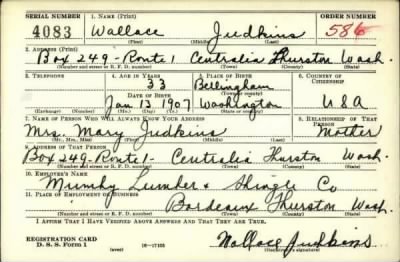 SERIAL NUMBER 1. NAME (Print) ORDER NUMBER
4083 Wallace Judkins 586
(First) (Middle) (Last)
2. ADDRESS (Print)
Box 249-Route 1 Centralia Thurston Wash.
(Number and street or R. F. D. number) (Town) (County) (State)
3. TELEPHONE 4. AGE IN YEARS 5. PLACE OF BIRTH 6. COUNTRY OF CITIZENSHIP
33 Bellingham
DATE OF BIRTH (Town or county)
Jan 13 1907 Washington U S A
(Exchange) (Number) (Mo.) (Day) (Yr.) (State or country)
7. NAME OF PERSON WHO WILL ALWAYS KNOW YOUR ADDRESS 8. RELATIONSHIP OF THAT PERSON
Mrs. Mary Judkins Mother
(Mr., Mrs., Miss) (First) (Middle) (Last)
9. ADDRESS OF THAT PERSON
Box 249-Route 1- Centralia Thurston Wash.
(Number and street or R. F. D. number) (Town) (County) (State)
10. EMPLOYER'S NAME
Mumby Lumber & Shingle Co
11. PLACE OF EMPLOYMENT OR BUSINESS
Bordeaux Thurston Wash.
(Number and street or R. F. D. number) (Town) (County) (State)
I AFFIRM THAT I HAVE VERIFIED ABOVE ANSWERS AND THAT THEY ARE TRUE.
REGISTRATION CARD
D. S. S. Form 1 (over) 16-17105 Wallace Judkins
(Registrant's signature)